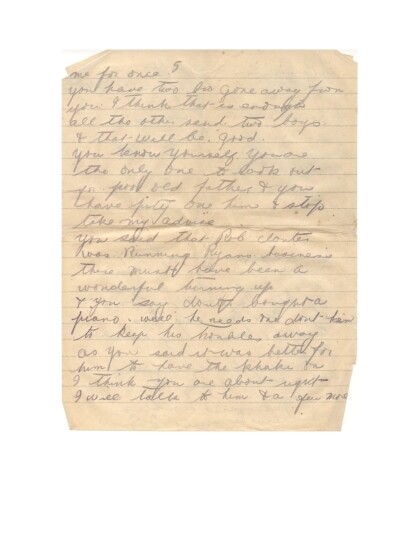 me for once 5
you have two bro gone away from
you I think that is enough
all the other send two boys
& that will be good.
You know yourself you are
the only one to look out
yr poor old father & you
have pity one him & stop
take my advice
You said that Bob
was Running Ryans business
there must have been a
wonderful turning up
& you say bought a
piano. well he needs one dont him
to keep his troubles away
as you said it was better for
him to have the khaki on
I think you are about right
I will talk to him & a few more